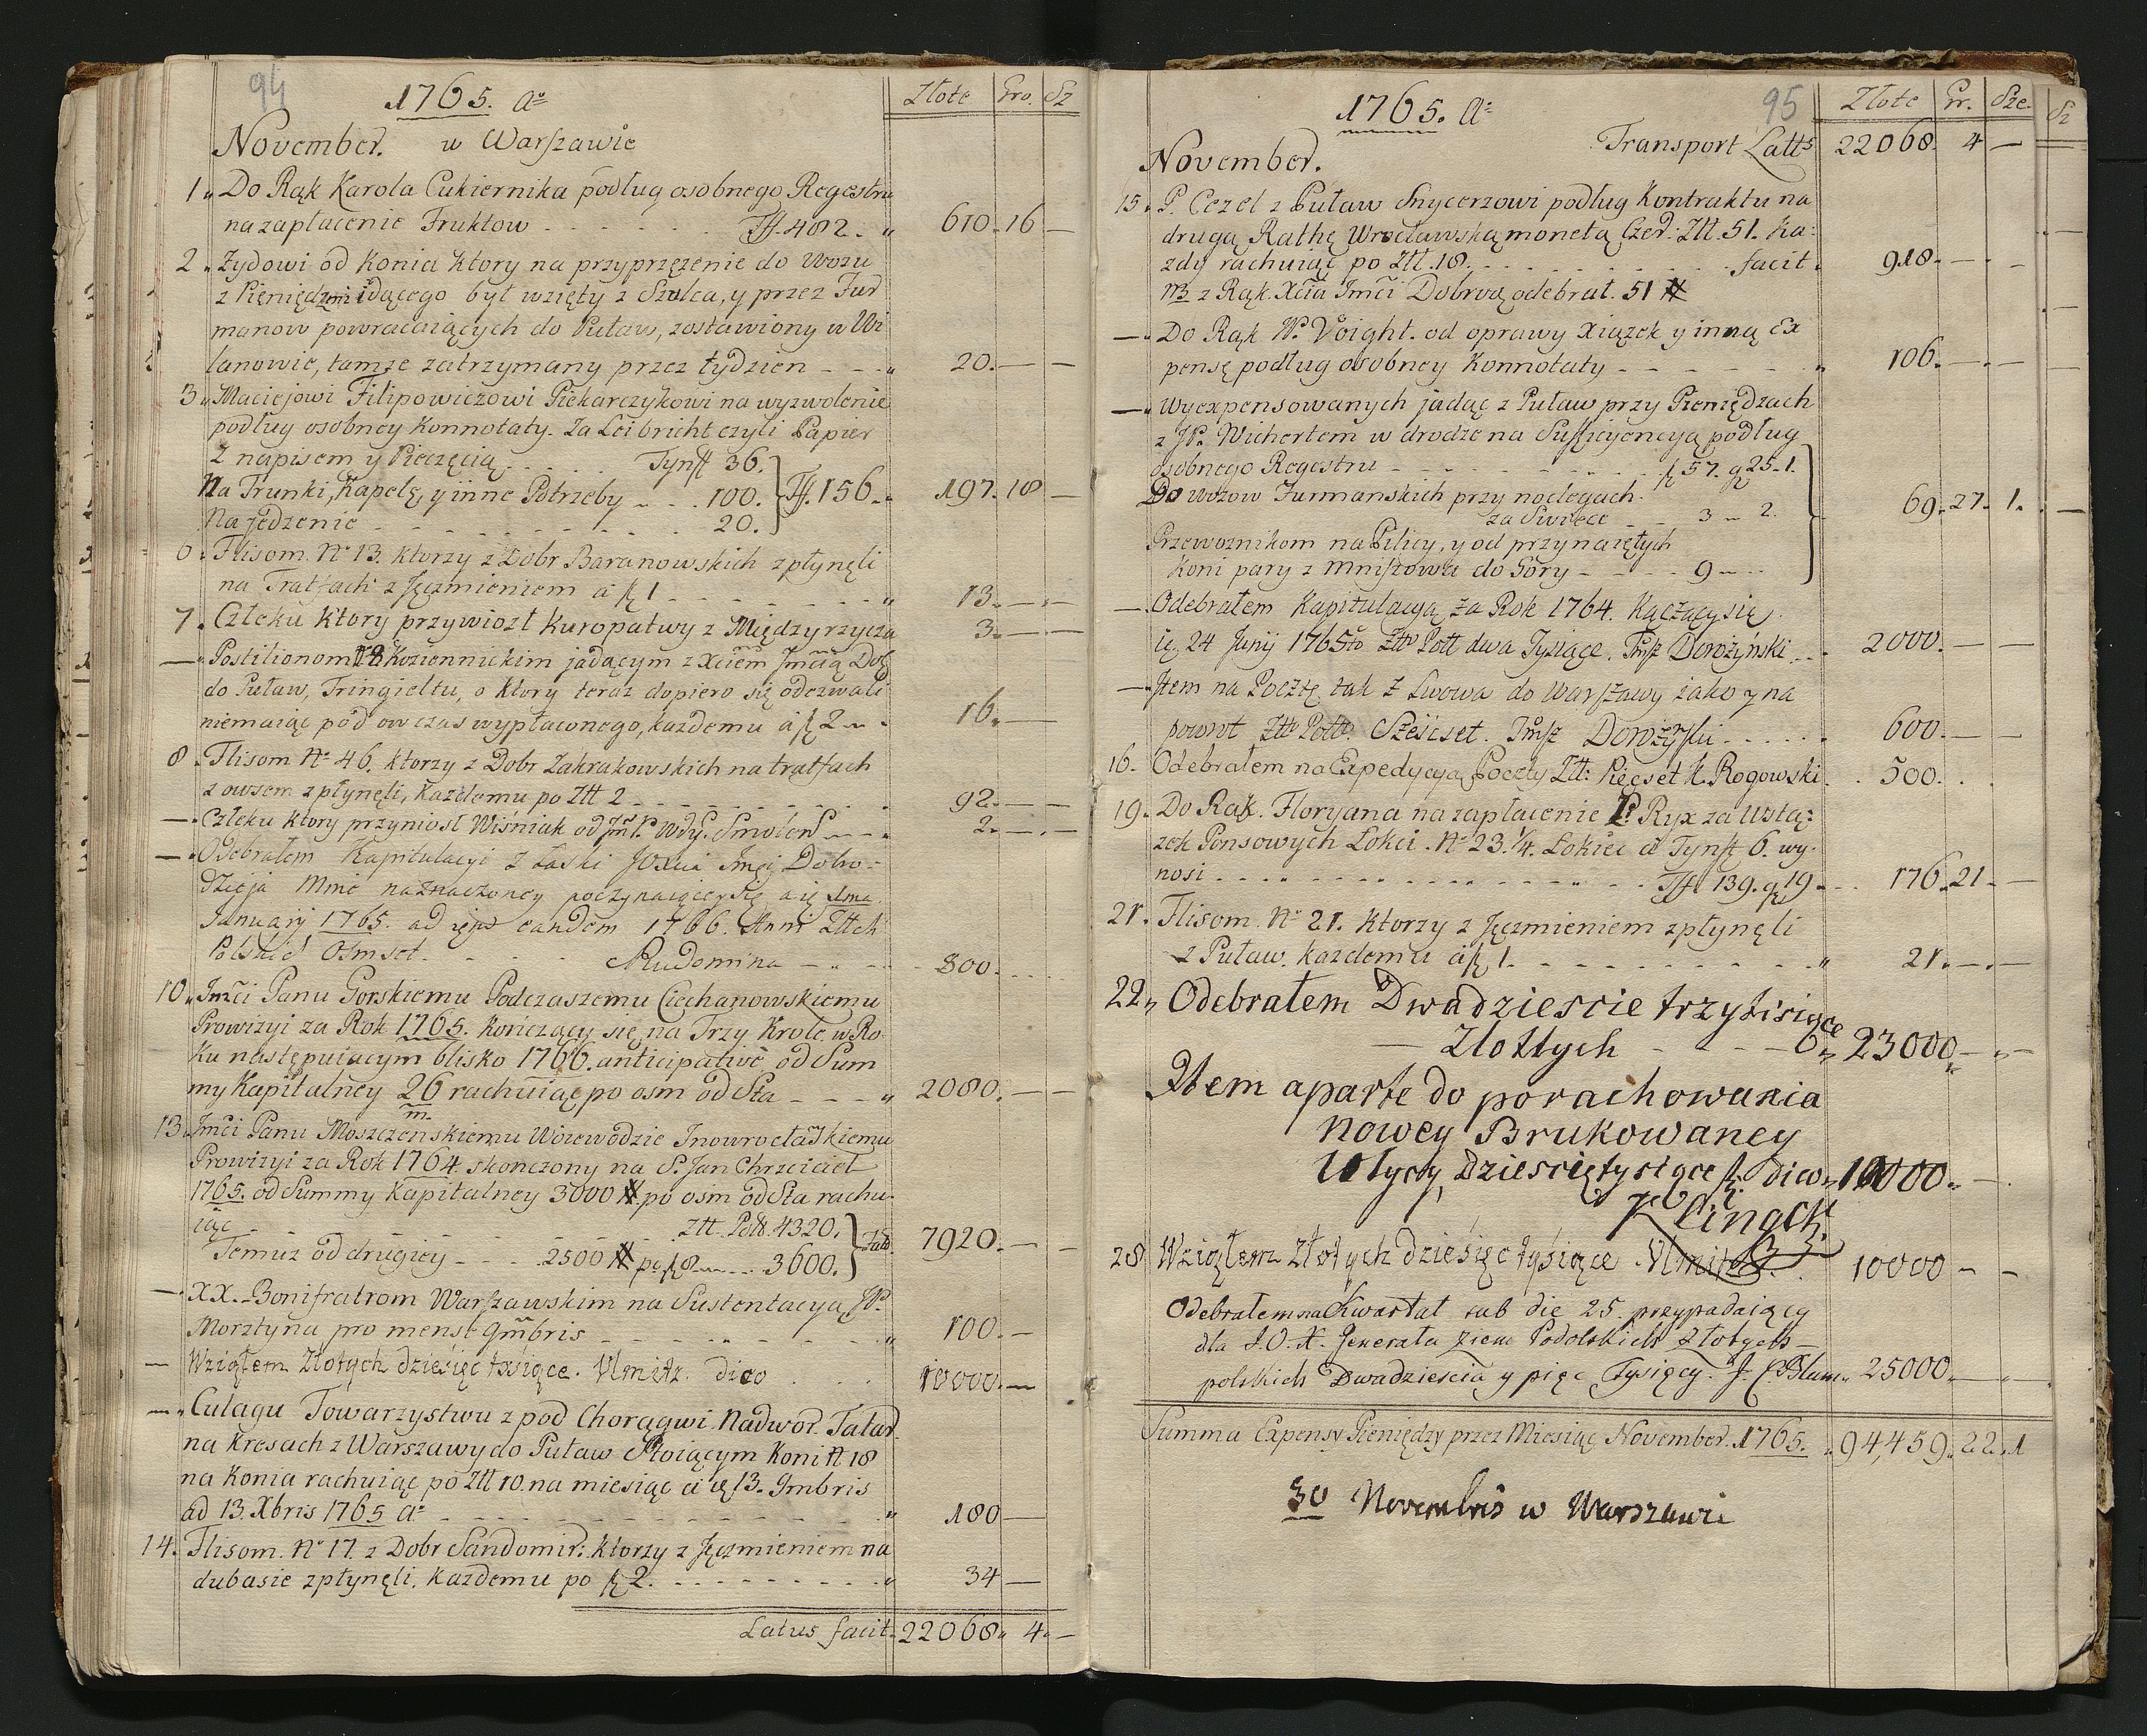 94
1765. Aº
Złote Gro. Sz
November. w Warszawie
1 „ Do Rąk Karola Cukiernika podług osobnego Regestru
na zapłacenie Fruktow - - - - - - Tff. 482. „ 610. 16 —
2 „ Zydowi od Konia ktory na przyprzęzenie do Wozu
z Pieniędzmi idącego był wzięty z Szolca, y przez Fur
manow powracaiących do Puław, zostawiony w Wi
lanowie, tamze zatrzymany przez tydzien - - - „ 20. — —
3 „ Maciejowi Filipowiczowi Piekarczykowi na wyzwolenie
podług osobney Konnotaty. Za Leibricht czyli Papier
z napisem y Pieczęcią - - - - Tynff 36.
Na Trunki, Kapelę, y inne Potrzeby - - - 100. } Tff. 156. „ 197. 18 —
Na jedzenie - - - - - - - - - - 20.
6 „ Flisom. Nº 13. ktorzy z Dobr Baranowskich zpłynęli
na Tratfach z Jęczmieniem á ƒ 1 - - - - - - „ 13. — —
7 „ Człeku ktory przywiozł Kuropatwy z Międzyrzycza 3. — —
— „ Postilionom 8 Koziennickim jadącym z Xciem Jmcią Dob
do Puław, Tringieltu, o ktory teraz dopiero się odezwali
niemaiąc pod ow czas wypłaconego, kazdemu á ƒ 2 „ 16. —
8 „ Flisom Nº 46. ktorzy z Dobr Zakrakowskich na tratfach
z owsem zpłynęli, kazdemu po Złł 2 - - - - - - - 92. — —
— „ Człeku ktory przyniosł Wiśniak od Jm P. Wdy. Smoleń - - 2. — —
— „ Odebrałem Kapitulacyi z Łaski JOXcia Jmci Dobro-
dzieja Mnie naznaczoney poczynaiącey się a ię 1ma
Januarij 1765. ad eandem 1766. Anni Złłch
Polskich Osmset. - - - - Rudomina - - - 800. . . .
10 „ Jmci Panu Gorskiemu Podczaszemu Ciechanowskiemu
Prowizyi za Rok 1765. Kończący się na Trzy Krole w Ro-
ku następuiącym blisko 1766. anticipativè od Sum
my Kapitalney 26 rachuiąc po osm od Sta - - - „ 2080. — —
m.
13 „ Jmci Panu Moszczeńskiemu Woiewodzie Inowrocławskiemu
Prowizyi za Rok 1764. skonczony na S. Jan Chrzciciel
1765. od Summy Kapitalney 3000 # po osm od Sta rachu-
iąc - - - - - - - Złł. Poll. 4320. } 7920. — —
Temuz od drugiey - - - 2500 # po ƒ 8 - - - 3600.
— „ XX. Bonifratrom Warszawskim na Sustentacyą JP.
Morztyna pro mense 9mbris - - - - - - - „ 100. —
— Wziąłem Złotych dziesięć tysięce. Ulmitz. dico . . . 10000. —
— „ Culagu Towarzystwu z pod Chorągwi Nadwor. Tatar.
na Kresach z Warszawy do Puław Stoiącym Koni N 18
na Konia rachuiąc po Złł 10 na miesiąc a 13. 9mbris
ad 13. Xbris 1765 Aº - - - - - - - - - „ 180 —
14. Flisom. Nº 17. z Dobr Sandomir: ktorzy z Jęczmieniem na
dubasie zpłynęli. kazdemu po ƒ 2. - - - - - - - - „ 34 —
Latus facit. 22068. 4. —
95
1765. Aº
Złote Gr. Sze.
Sz
Transport Latts 22068. 4 —
November.
15 „ P. Cezel z Puław Snycerzowi podług Kontraktu na
drugą Rathę Wrocławską monetą Czer: Złł. 51. Ka:
zdy rachuiąc po Złł. 18. - - - - - - - - facit. 918. — . —
NB z Rąk Xcia Jmci Dobro odebrał. 51 #
— „ Do Rąk W. Voight. od oprawy Xiązek y inną Ex
pensę podług osobney Konnotaty - - - - - - „ 106. — . —
— „ Wyexpensowanych jadąc z Puław przy Pieniędzach
z JP. Wichertem w drodze na Sufficyencyą podług
osobnego Regestru - - - - - - - - - ƒ 57. g 25. 1.
Do Wozow Furmanskich przy noclegach
za Swiece - - 3 „ 2. } 69. 27. 1.
Przewoznikom na Pilicy, y od przynaiętych
Koni pary z Mniszowa do Gory - - - - 9 „
— Odebrałem Kapitulacyą za Rok 1764. Kączący się
24 Junij 1765to Złł Poll dwa Tysiące. Jmsz Dorożyński 2000. — —
— Item na Pocztę tak z Lwowa do Warszawy iako y na
powrot Złł Poll. Sześćset. Jmsz Dorożyński - - - 600. — —
16. Odebrałem na Expedycyą Poczty Złł: Pięcset K. Rogowski . 500. .
19. Do Rąk. Floryana na zapłacenie P. Ryx za Wstą:
zek Ponsowych Łokci. Nº 23. 1/4. Łokieć á Tynff 6. wy-
nosi - - - - - - - - - - - - - Tff. 139. g 19 - - 176. 21. —
21. Flisom. Nº 21. ktorzy z Jęczmieniem zpłynęli
z Puław. kazdemu á ƒ 1. - - - - - - - - „ 21. — . —
22 „ Odebrałem Dwadziescie trzy tisiące
— Złottych - - - - „ 23000 „ — „ —
Item aparte do porachowania
Nowey Brukowaney
Ulycy, Dziesięć tysięce ƒ dico „ 10000 „ —
28 Wziąłem Złotych dziesięc tysięce Ulmitz . . 10000 — —
Odebrałem na Kwartał sub die 25. przypadaiący
dla J.O.X. Generała Ziem Podolskich Złotych —
polskich Dwadzieścia y pięć Tysięcy. J. C. Blum. 25000 „ — „ —
Summa Expensy Pieniędzy przez Miesiąc November. 1765. „ 94,459. 22. 1
30 Novembris w Warszawie